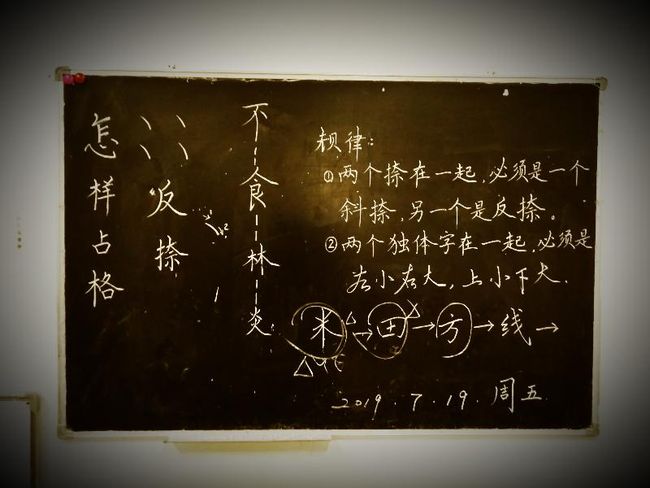 怎样占格
反捺
不--食--林--炎
规律：
①两个捺在一起，必须是一个
斜捺，另一个是反捺。
②两个独体字在一起，必须是
左小右大，上小下大.
米→田→方→线→
2019.7.19.周五.